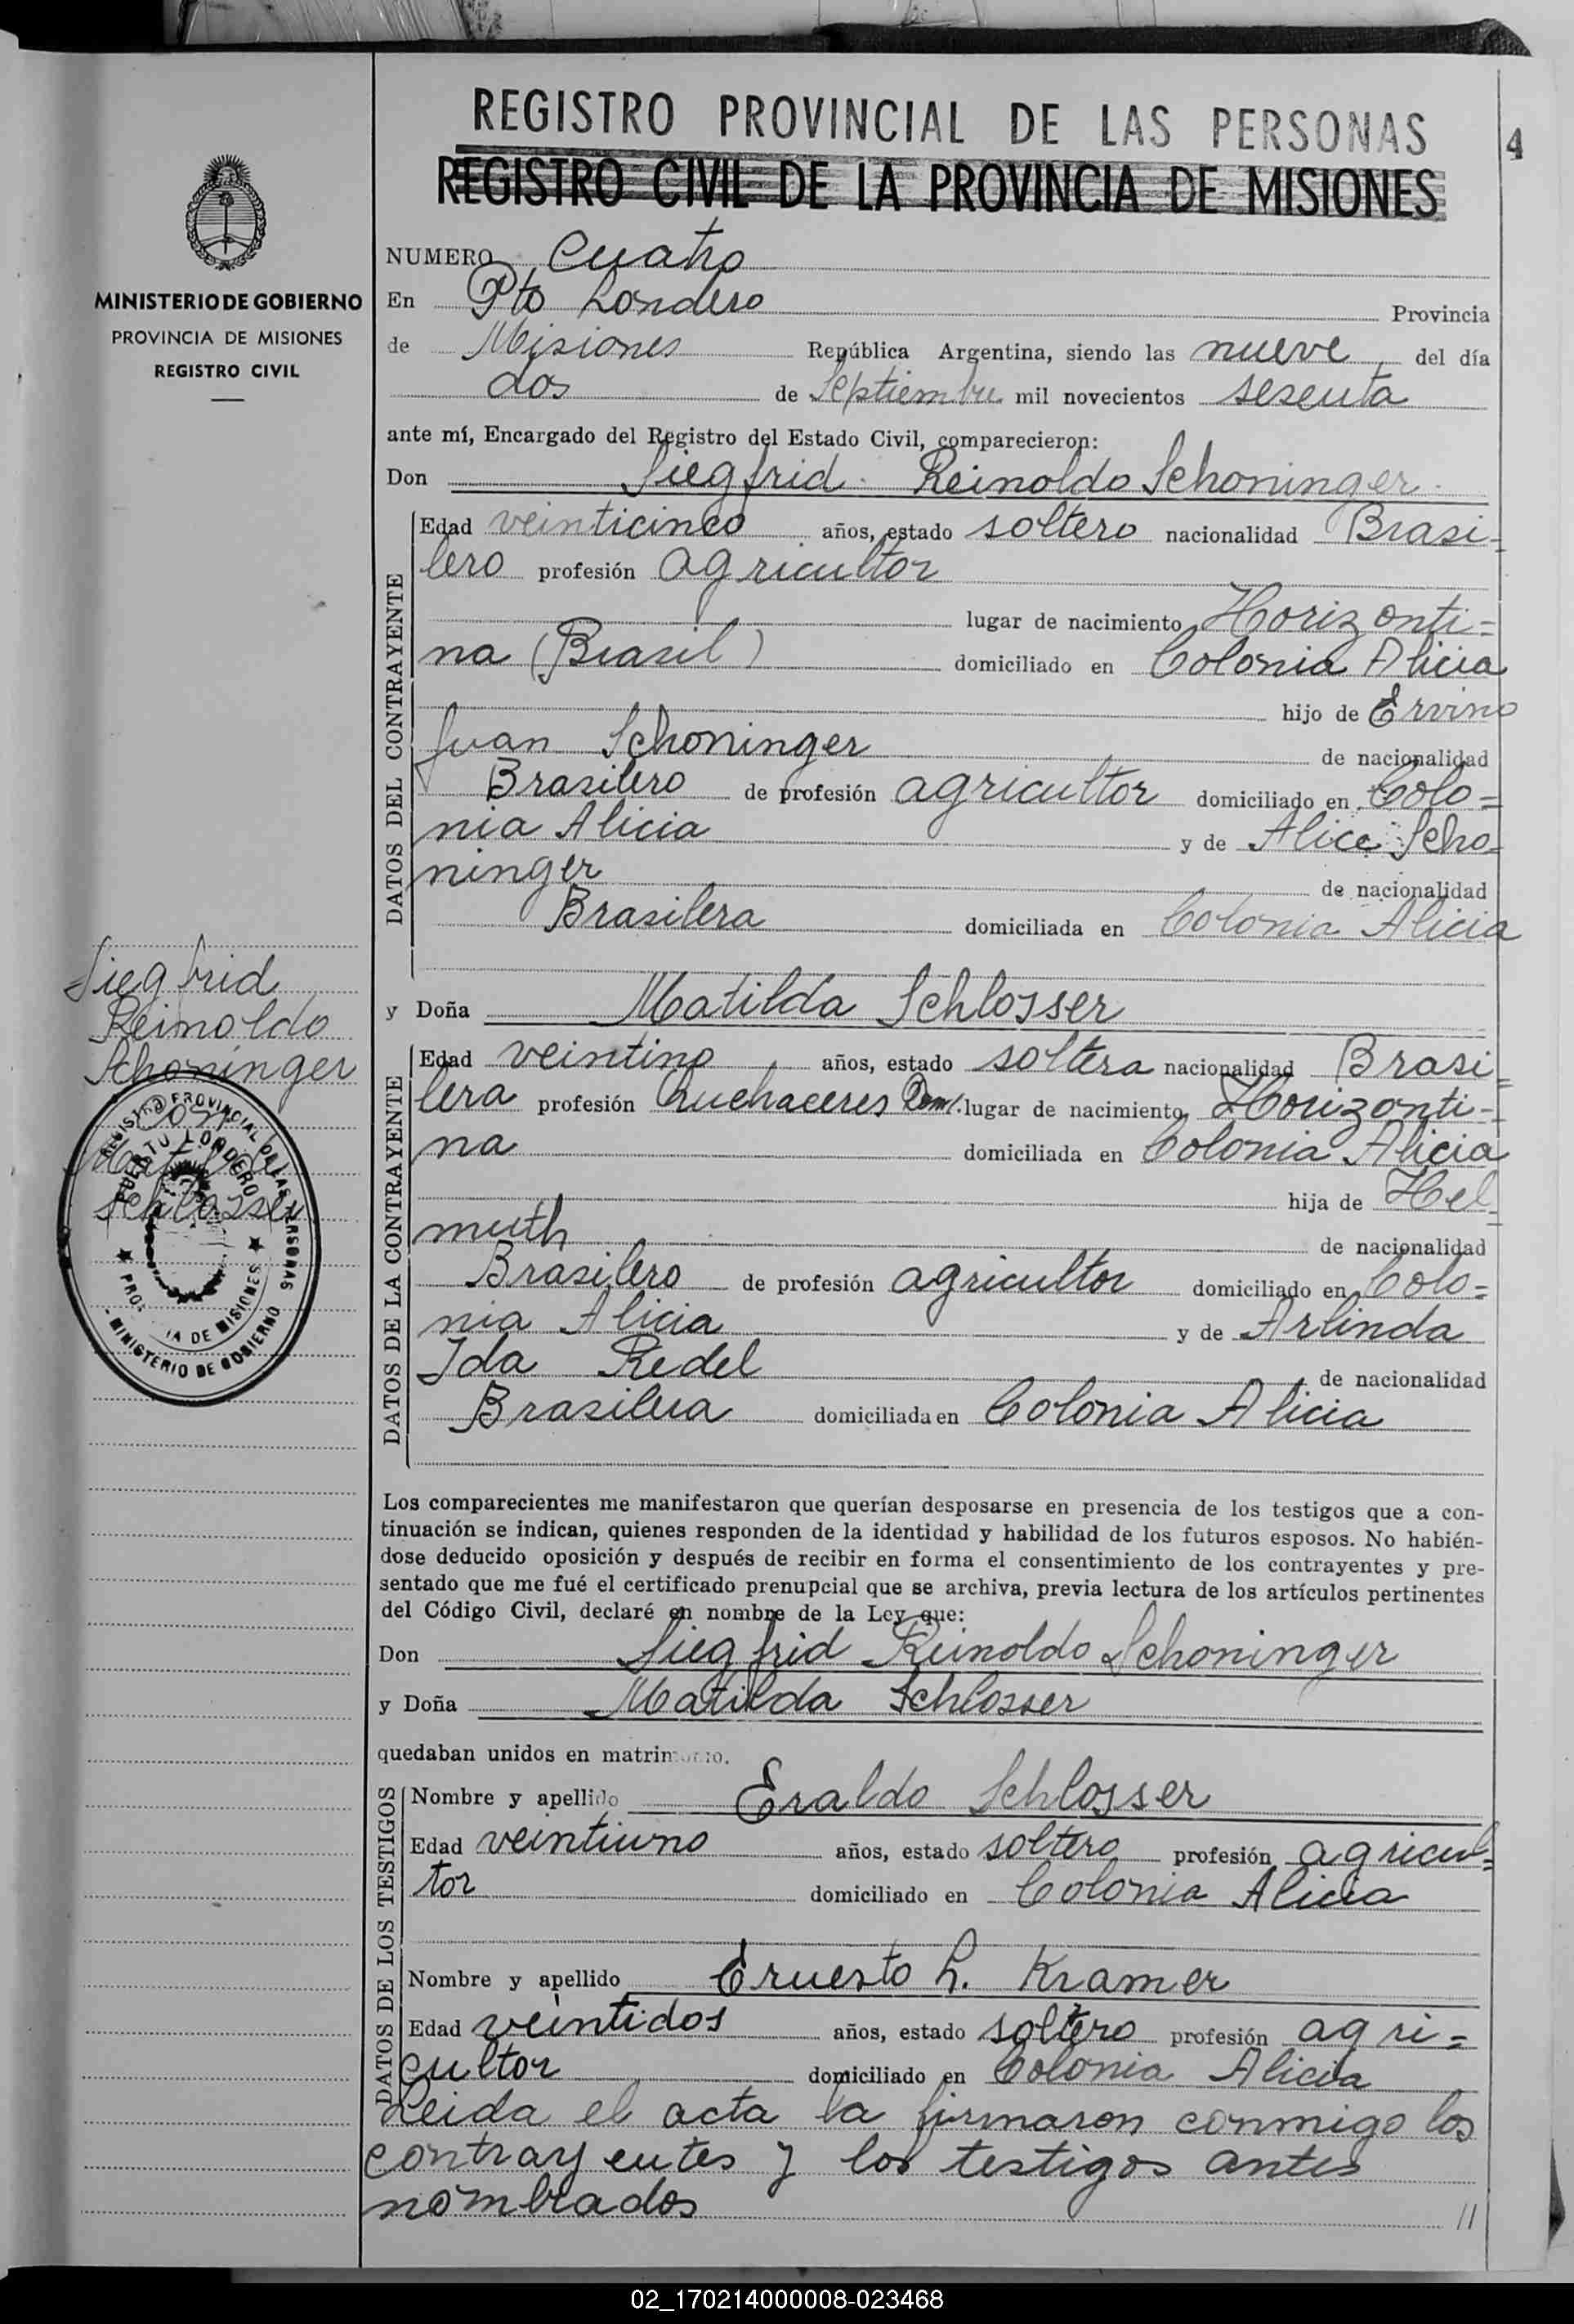 REGISTRO PROVINCIAL DE LAS PERSONAS
4
REGISTRO CIVIL DE LA PROVINCIA DE MISIONES
MINISTERIO DE GOBIERNO
PROVINCIA DE MISIONES
REGISTRO CIVIL
NUMERO Cuatro
En Pto Londero Provincia
de Misiones República Argentina, siendo las nueve del día
dos de Septiembre mil novecientos sesenta
ante mí, Encargado del Registro del Estado Civil, comparecieron:
Don Siegfrid Reinoldo Schoninger
DATOS DEL CONTRAYENTE
Edad veinticinco años, estado soltero nacionalidad Brasi-
lero profesión agricultor
lugar de nacimiento Horizonti=
na (Brasil) domiciliado en Colonia Alicia
hijo de Ervino
Juan Schoninger de nacionalidad
Brasilero de profesión agricultor domiciliado en Colo=
nia Alicia y de Alice Scho-
ninger de nacionalidad
Brasilera domiciliada en Colonia Alicia
Siegfrid
Reinoldo
Schoninger
con
Matilda
Schlosser
REGISTRO PROVINCIAL DE LAS PERSONAS
PUERTO LONDERO
MINISTERIO DE GOBIERNO
y Doña Matilda Schlosser
DATOS DE LA CONTRAYENTE
Edad veintino años, estado soltera nacionalidad Brasi=
lera profesión Quehaceres Dom. lugar de nacimiento Horizonti-
na domiciliada en Colonia Alicia
hija de Hel-
muth de nacionalidad
Brasilero de profesión agricultor domiciliado en Colo=
nia Alicia y de Arlinda
Ida Redel de nacionalidad
Brasilera domiciliada en Colonia Alicia
Los comparecientes me manifestaron que querían desposarse en presencia de los testigos que a con-
tinuación se indican, quienes responden de la identidad y habilidad de los futuros esposos. No habién-
dose deducido oposición y después de recibir en forma el consentimiento de los contrayentes y pre-
sentado que me fué el certificado prenupcial que se archiva, previa lectura de los artículos pertinentes
del Código Civil, declaré en nombre de la Ley que:
Don Siegfrid Reinoldo Schoninger
y Doña Matilda Schlosser
quedaban unidos en matrimonio.
DATOS DE LOS TESTIGOS
Nombre y apellido Eraldo Schlosser
Edad veintiuno años, estado soltero profesión agricul=
tor domiciliado en Colonia Alicia
Nombre y apellido Ernesto L. Kramer
Edad veintidos años, estado soltero profesión agri=
cultor domiciliado en Colonia Alicia
Leida el acta la firmaron conmigo los
contrayentes y los testigos antes
nombrados //
02_170214000008-023468